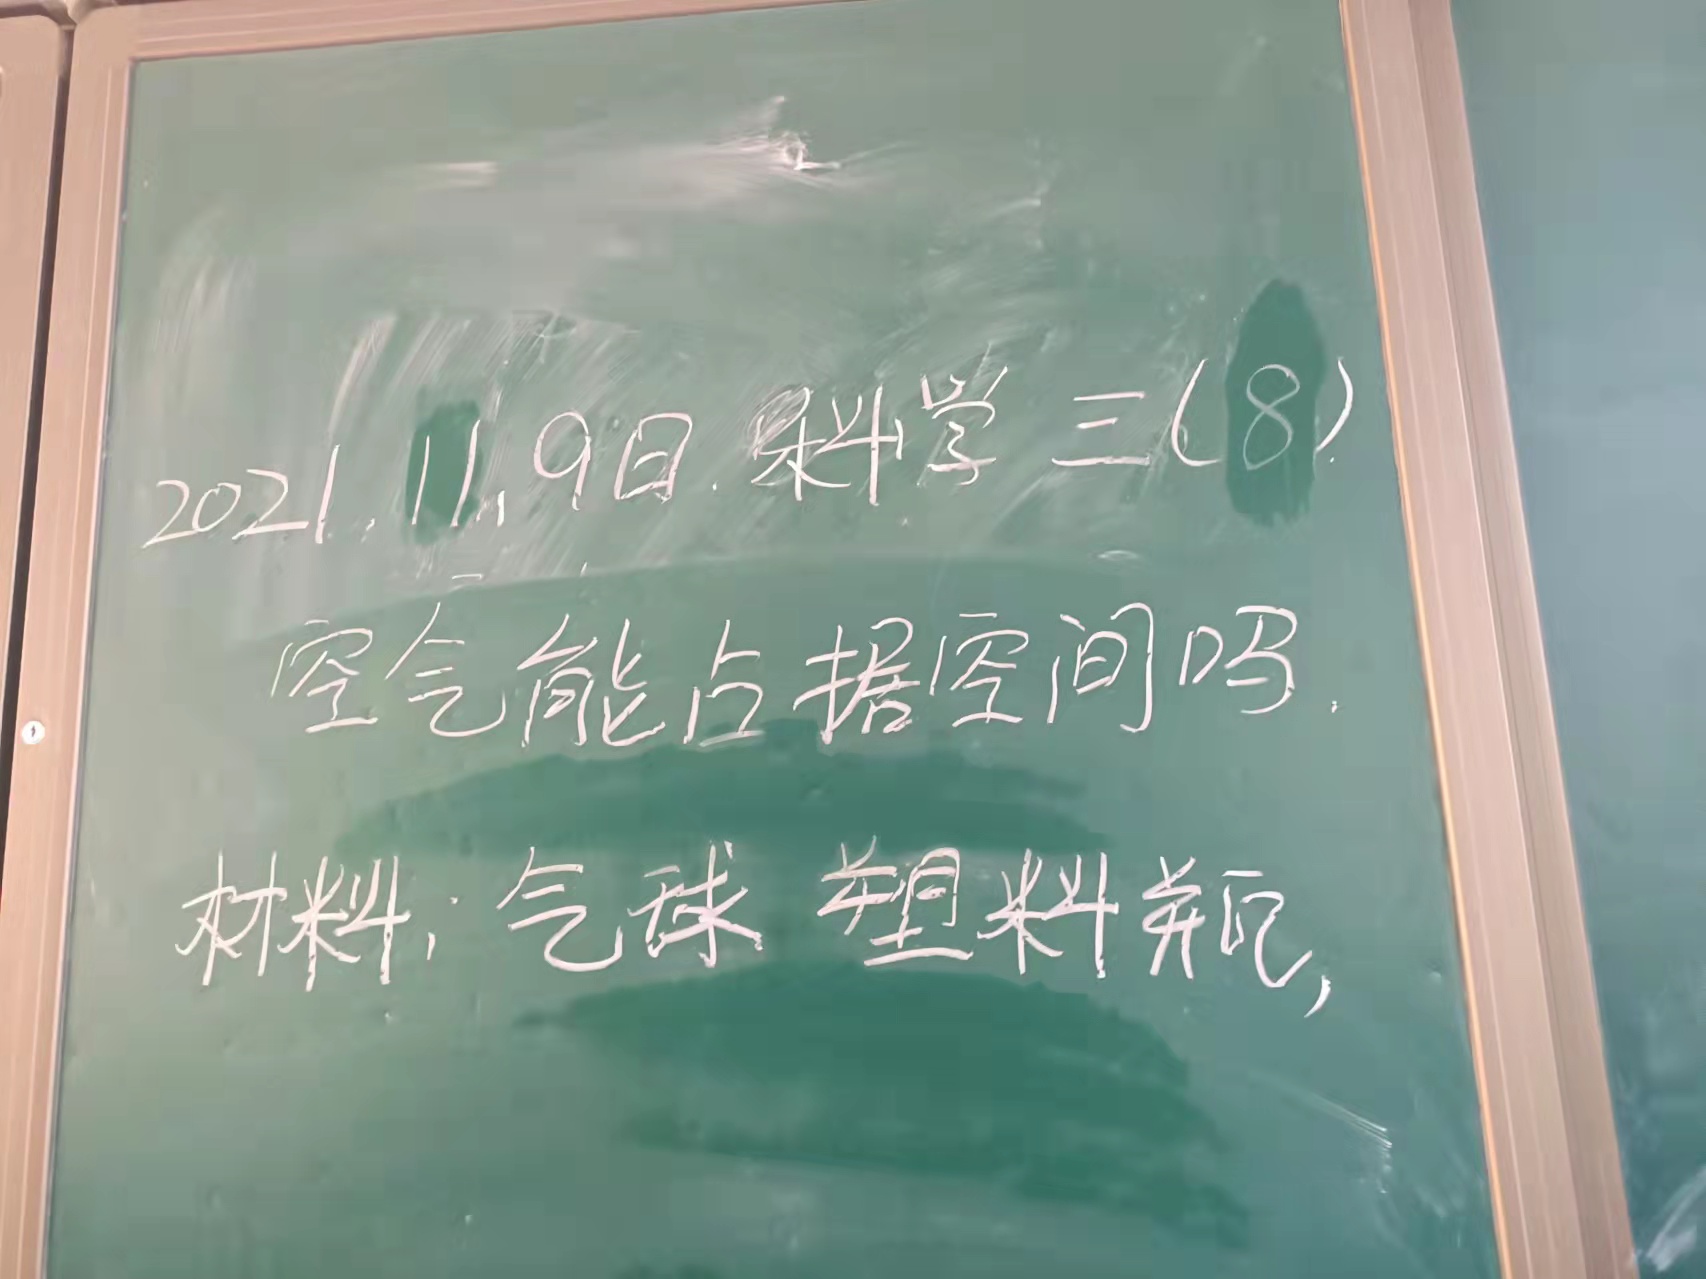 2021.11.9日.科学三(8)
空气能占据空间吗.
材料:气球 塑料瓶,